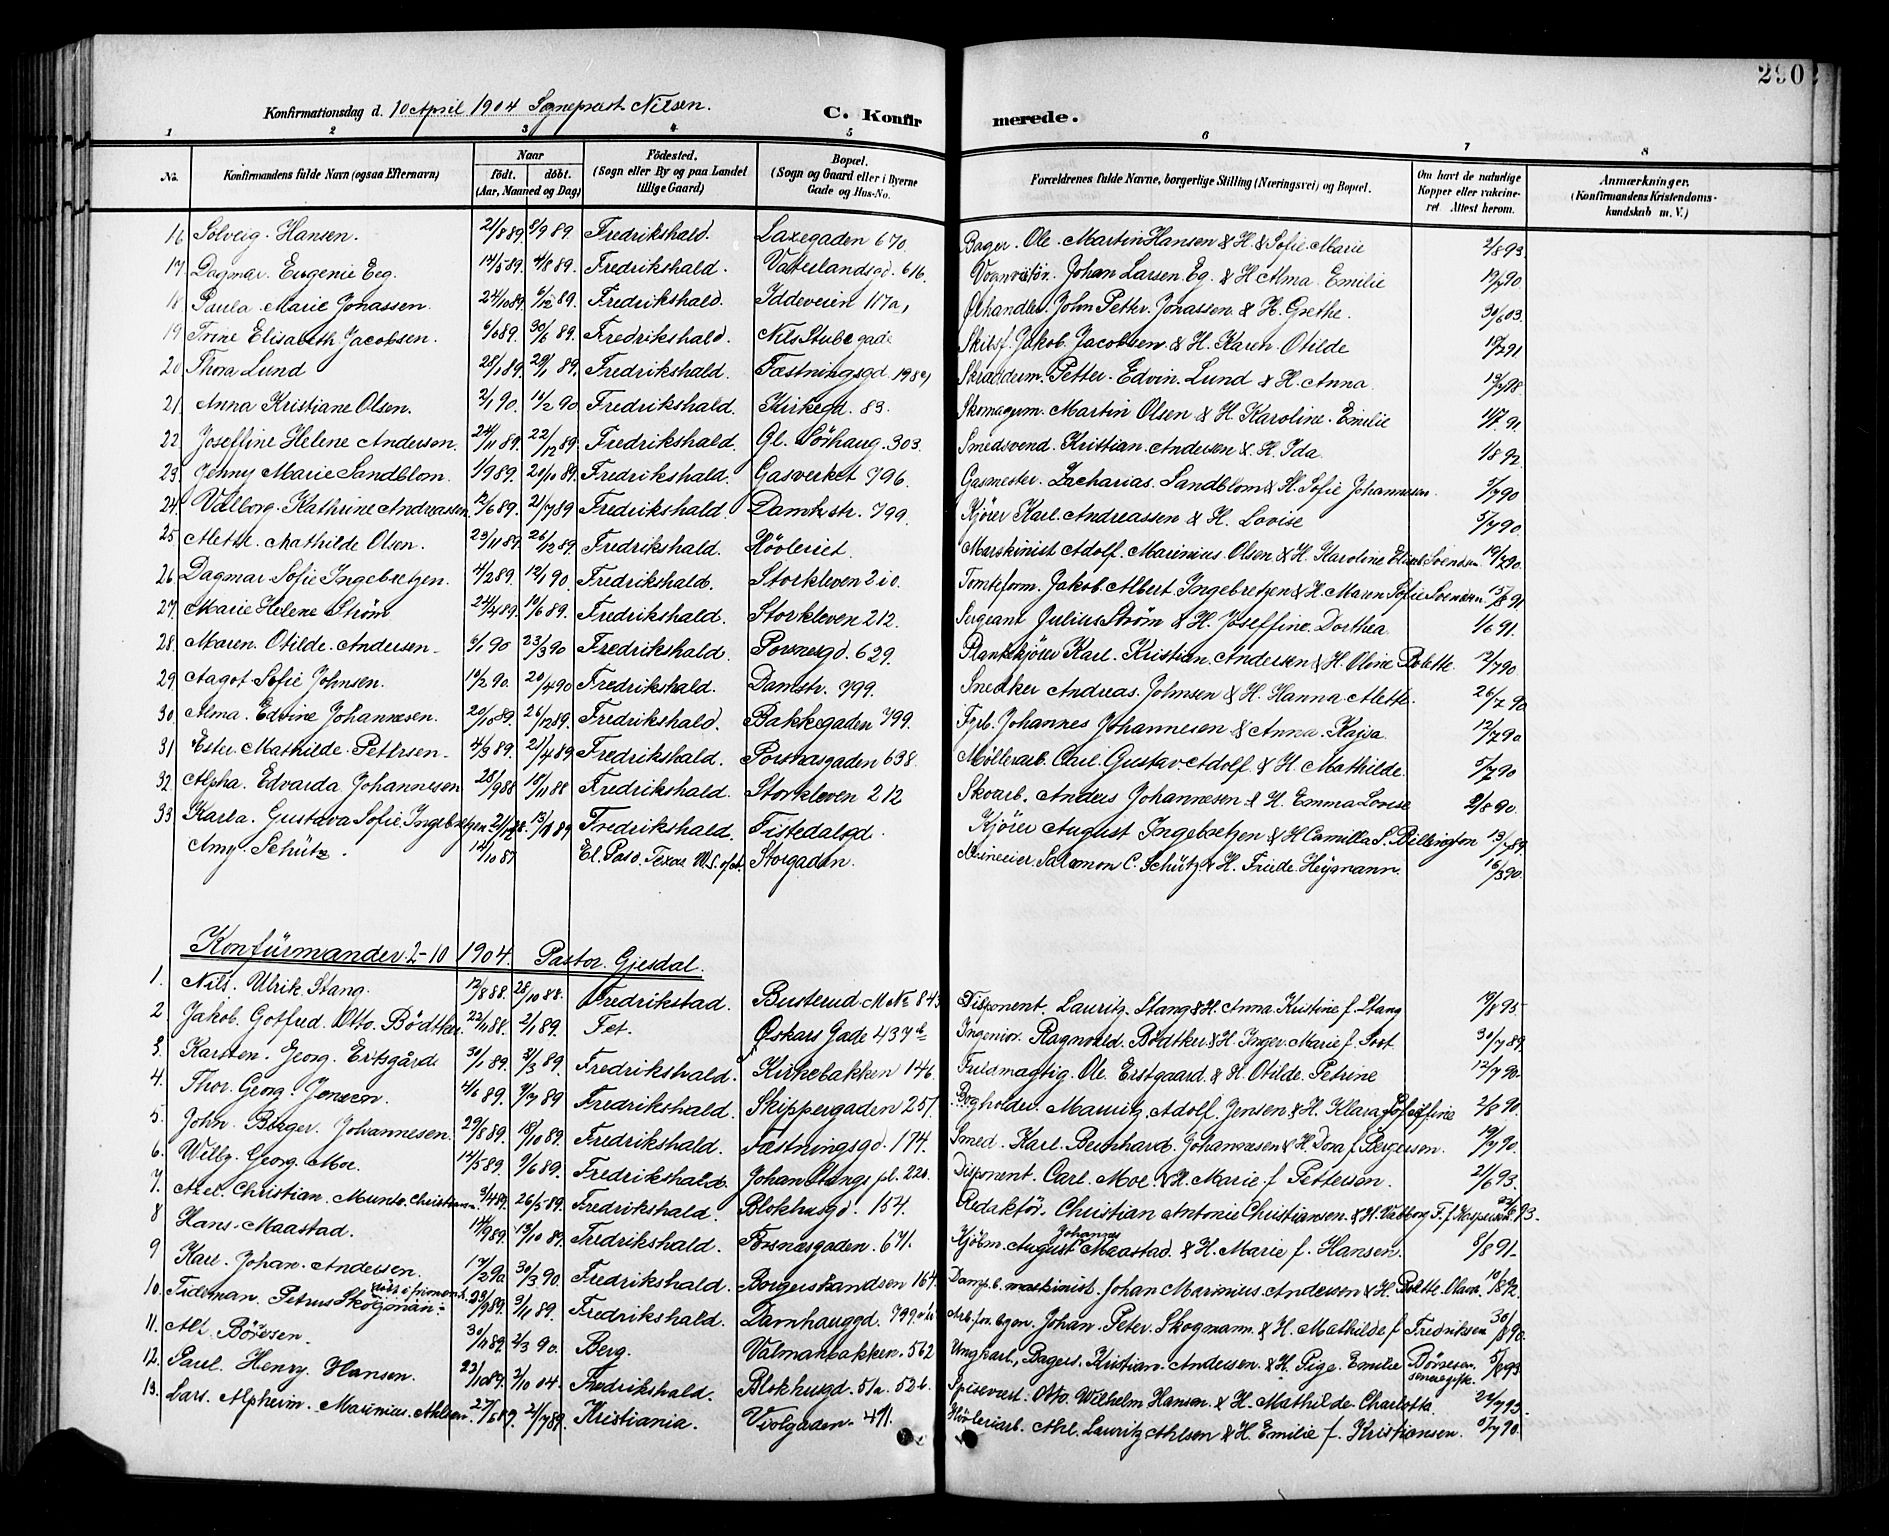 290
Konfirmationsdag d. 10 April 1904 Sogneprest Nilsen.
C. Konfirmerede.
1 2 3 4 5 6 7 8
No. Konfirmandens fulde Navn (ogsaa Efternavn) Naar födt. döbt. (Aar, Maaned og Dag) Födested. (Sogn eller By og paa Landet tillige Gaard) Bopæl. (Sogn og Gaard eller i Byerne Gade og Hus-No. Forældrenes fulde Navne, borgerlige Stilling (Næringsvei) og Bopæl. Om havt de naturlige Kopper eller vakcineret Attest herom. Anmærkninger. (Konfirmandens Kristendomskundskab m. V.)
16 Solveig Hansen. 21/8 89. 8/9 89. Fredrikshald. Laxegaden 670. Bager. Ole Martin Hansen & H. Sofie Marie 2/8 93
17 Dagmar Eugenie Eeg. 14/5 89. 4/8 89. Fredrikshald. Vaterlandsgd. 616. Johan Larsen Eg. & H. Alma Emilie 19/7 90
18 Paula Marie Jonassen. 24/10 89. 6/12 89. Fredrikshald. Iddeveien 117a, Ølhandler. John Petter Jonassen & H. Grethe. 30/6 03.
19 Trine Elisabeth Jacobsen. 6/6 89. 30/6 89. Fredrikshald. Nils Stubsgade Skibsf. Jakob Jacobsen & H. Karen Otilde 19/7 91
20 Thora Lund 28/1 89. 29/1 89. Fredrikshald. Fæstningsgd 198a, Skrædderm. Petter Edvin Lund & H. Anna.
21 Anna Kristiane Olsen. 2/1 90. 16/2 90 Fredrikshald. Kirkegd. 83. Skomagerm. Martin Olsen & H. Karoline Emilie 1/7 91
22 Joseffine Helene Andersen. 24/11 89. 22/12 89. Fredrikshald. Gl. Sörhaug. 303. Smedsvend. Kristian Andersen & H. Ida. 1/8 92.
23 Jenny Marie Sandblom. 1/9 89. 20/10 89. Fredrikshald. Gasverket 796. Gasmester. Zacharias Sandblom & H. Sofie Johannesen. 5/7 90
24 Valborg Kathrine Andreassen. 12/6 89. 21/7 89 Fredrikshald. Damhstr. 799. Kjører Karl Andreassen & H. Lovise 5/7 90.
25 Alette Mathilde Olsen. 23/11 89. 26/12 89. Fredrikshald. Hövleriet. Marskinist Adolf Marinius Olsen & H. Karoline Elise Svendsen. 19/7 90.
26 Dagmar Sofie Ingebretzen. 4/2 89. 12/1 90. Fredrikshald. Storkleven 210. Tomteform. Jakob Albert Ingebretzen & H. Maren Sofie Svensen 15/8 91
27. Marie Helene Strøm 24/4 89. 10/6 89. Fredrikshald. Storkleven 212. Sergeant Julius Strøm & H. Joseffine Dorthea. 1/6 91.
28. Maren Otilde Andersen. 6/1 90 23/3 90 Fredrikshald. Porsnesgd. 629. Plankekjører Karl Kristian Andersen & H. Oline Bolette. 12/7 90.
29 Aagot Sofie Johnsen. 10/2 90. 20/4 90 Fredrikshald. Damstr. 799. Snedker Andreas Johnsen & H. Hanna Alette. 26/7 90
30. Alma Edvine Johannesen. 20/10 89. 26/12 89. Fredrikshald. Bakkegaden 799. Fyrb. Johannes Johannesen & Anna Kajsa. 12/7 90.
31 Ester Mathilde Pettersen. 4/3 89. 21/4 89 Fredrikshald. Porsnæsgaden 638. Møllerarb. Carl Gustav Adolf & H. Mathilde. 5/7 90
32. Alpha Edvarda Johannesen 28/9 88 18/11 88 Fredrikshald. Storkleven 212 Skoarb. Anders Johannesen & H. Emma Lovise 2/8 90.
33 Karla Gustava Sofie Ingebretzen Fredrikshald. Tistedalsgd. Kjører August Ingebretzen & H. Camilla S. Billington 13/7 89.
Amy Schütz. 14/10 87. El. Paso. Texas Storgaden. Salomon C. Schütz & H. Friede Heymann. 16/3 90.
Konfirmander 2-10 1904. Pastor Gjesdal.
1. Nils Ulrik Stang. 12/8 88. 28/10 88. Fredrikstad. Busterud M No 843 Disponent. Lauritz Stang & H. Anna Kristine f. Stang 19/8 95
2 Jakob Gotfred Otto Bödtker 22/11 88. 2/1 89. Fet. Oskars Gade 437b Ingeniør. Ragnvald Bödtker & H. Inger Marie f. Sost. 30/7 89
3. Karsten Georg Ertsgårde 30/1 89. 31/3 89. Fredrikshald. Kirkebakken 146. Fuldmægtig. Ole Erstgaard & H. Otilde Petrine 12/7 90.
4. Thor Georg Jensen. 4/6 89. 7/7 89 Fredrikshald. Skippergaden 251. Bogholder. Mauritz Adolf Jensen & H. Klara Joseffine 2/8 90.
5. John Birger Johannesen. 29/8 89. 18/10 89. Fredrikshald. Fæstningsgd. 174. Smed. Karl Bernhard Johannesen & H. Dora f. Bergersen. 19/7 90.
6. Willy Georg Moe. 14/5 89. 9/6 89. Fredrikshald. Johan Stangs pl. 220. Disponent. Carl Moe & H. Marie f. Pettersen. 21/6 93.
7. Axel Christian Munte Christiansen. 3/4 89. 26/5 89. Fredrikshald. Blokhusgd. 154. Redaktör. Christian Antonie Christiansen & H. Valborg F. f. Kaspersen
8 Hans Maastad. 14/9 89. 13/10 89. Fredrikshald. Porsnæsgaden 671. Kjøbm. August Johannes Maastad & H. Marie f. Hansen. 8/8 91.
9 Karl Johan Andersen. 17/2 90. 30/3 90. Fredrikshald. Borgerskandsen 164. Damp.b. maskinist. Johan Marinius Andersen & H. Bolette Olava. 10/8 92.
10. Tideman Petrus Skogman 23/9 89. 3/11 89. Fredrikshald. Damhauggd. 799. Arb.for.byen. Johan Peter Skogmann & H. Mathilde f. Fredriksen 30/8 90.
11. Alf Böresen. 30/11 89. 2/3 90. Berg. Valmanbakken. 562 Ungkarl, Bagers. Kristian Andersen & Pige Emilie Börresen senere gift.
12. Paul Henry Hansen. 22/10 89. 2/10 04. Fredrikshald. Blokhusgd. 51a. 52b. Spisevært. Otto Wilhelm Hansen & H. Mathilde Charlotta. 22/7 93.
13. Lars Alpheim Marinius Ahlsen. 27/6 89. 21/7 89. Kristiania. Violgaden. 491. Hövleriarb. Ahl Lauritz Ahlsen & H. Emilie f. Kristiansen. 5/7 90.